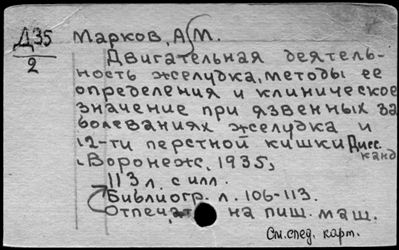 Д35
2
Марков, А. М.
Двигательная деятель-
ность желудка, методы ее
определения и клиническое
значение при язвенных за
болеваниях желудка и
12-ти перстной кишки Дисс.
канд
Воронеж, 1935,
113 л. с илл.
Библиогр. л. 106-113.
Отпечат. на пиш. маш.
См. спед. карт.